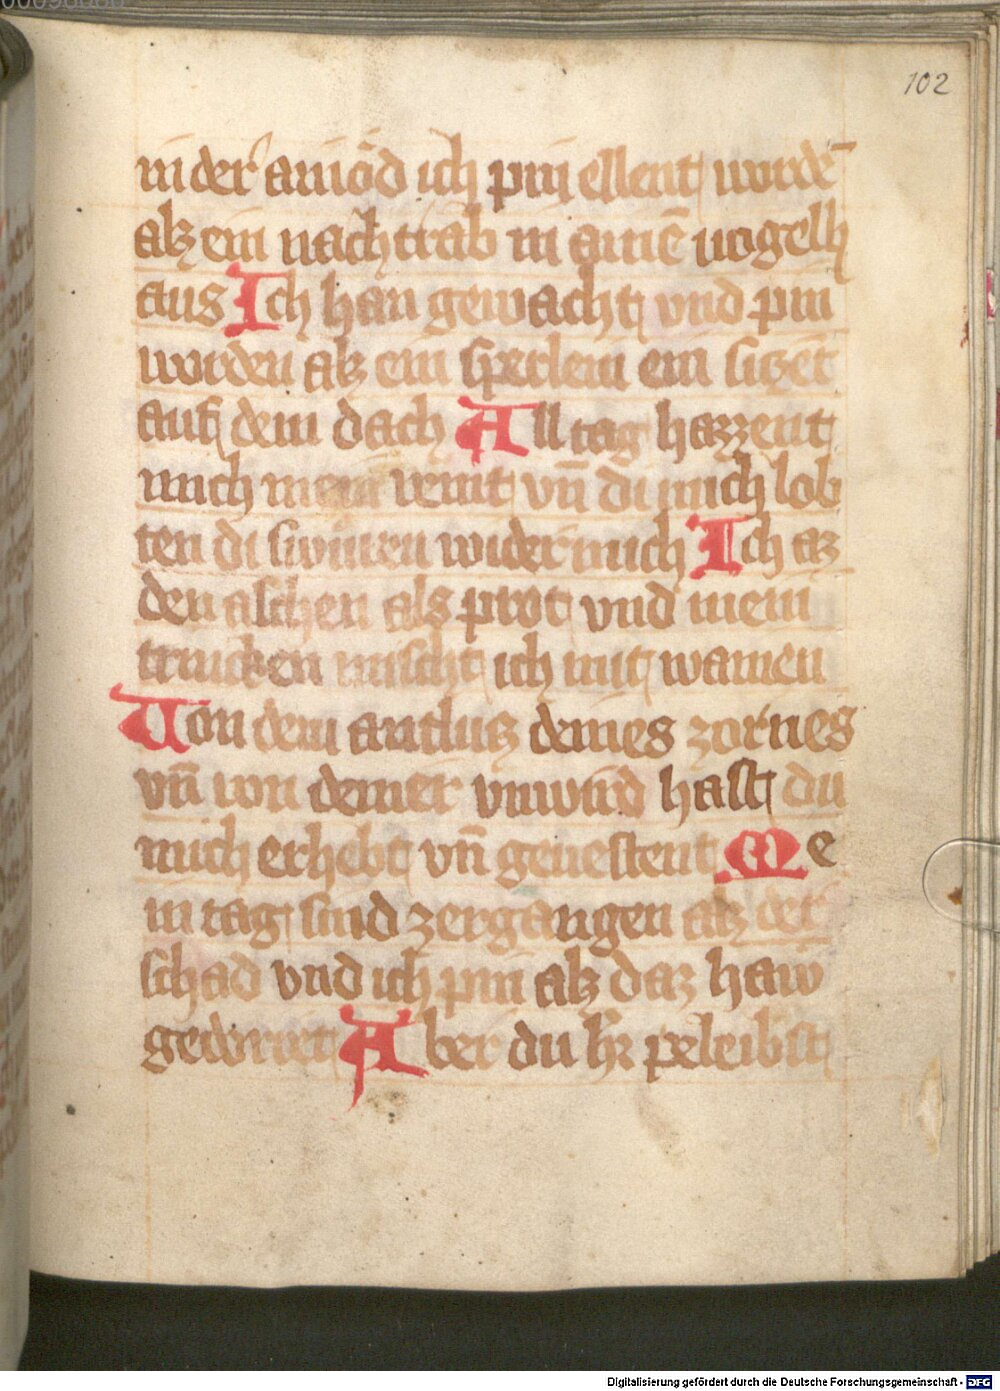 102
in der ainöd ich pin ellent wordē
alz ein nachtrab in ainē vogelh
aus Ich han gewacht vnd pin
worden alz ein sperlein ein sitzēt
auf dem dach All tag hazzent
mich mein veint vn̄ di mich lob
ten di swuren wider mich Ich az
den aschen als prot vnd mein
trincken mischt ich mit wainen
Von dem antlutz deines zornes
vn̄ von deiner vnwird hast du
mich erhebt vn̄ geuestent Me
in tag sind zergangen alz der
schad vnd ich pin alz daz haw
gedorret Aber du hr̄ peleibst
Digitalisierung gefördert durch die Deutsche Forschungsgemeinschaft - DFG